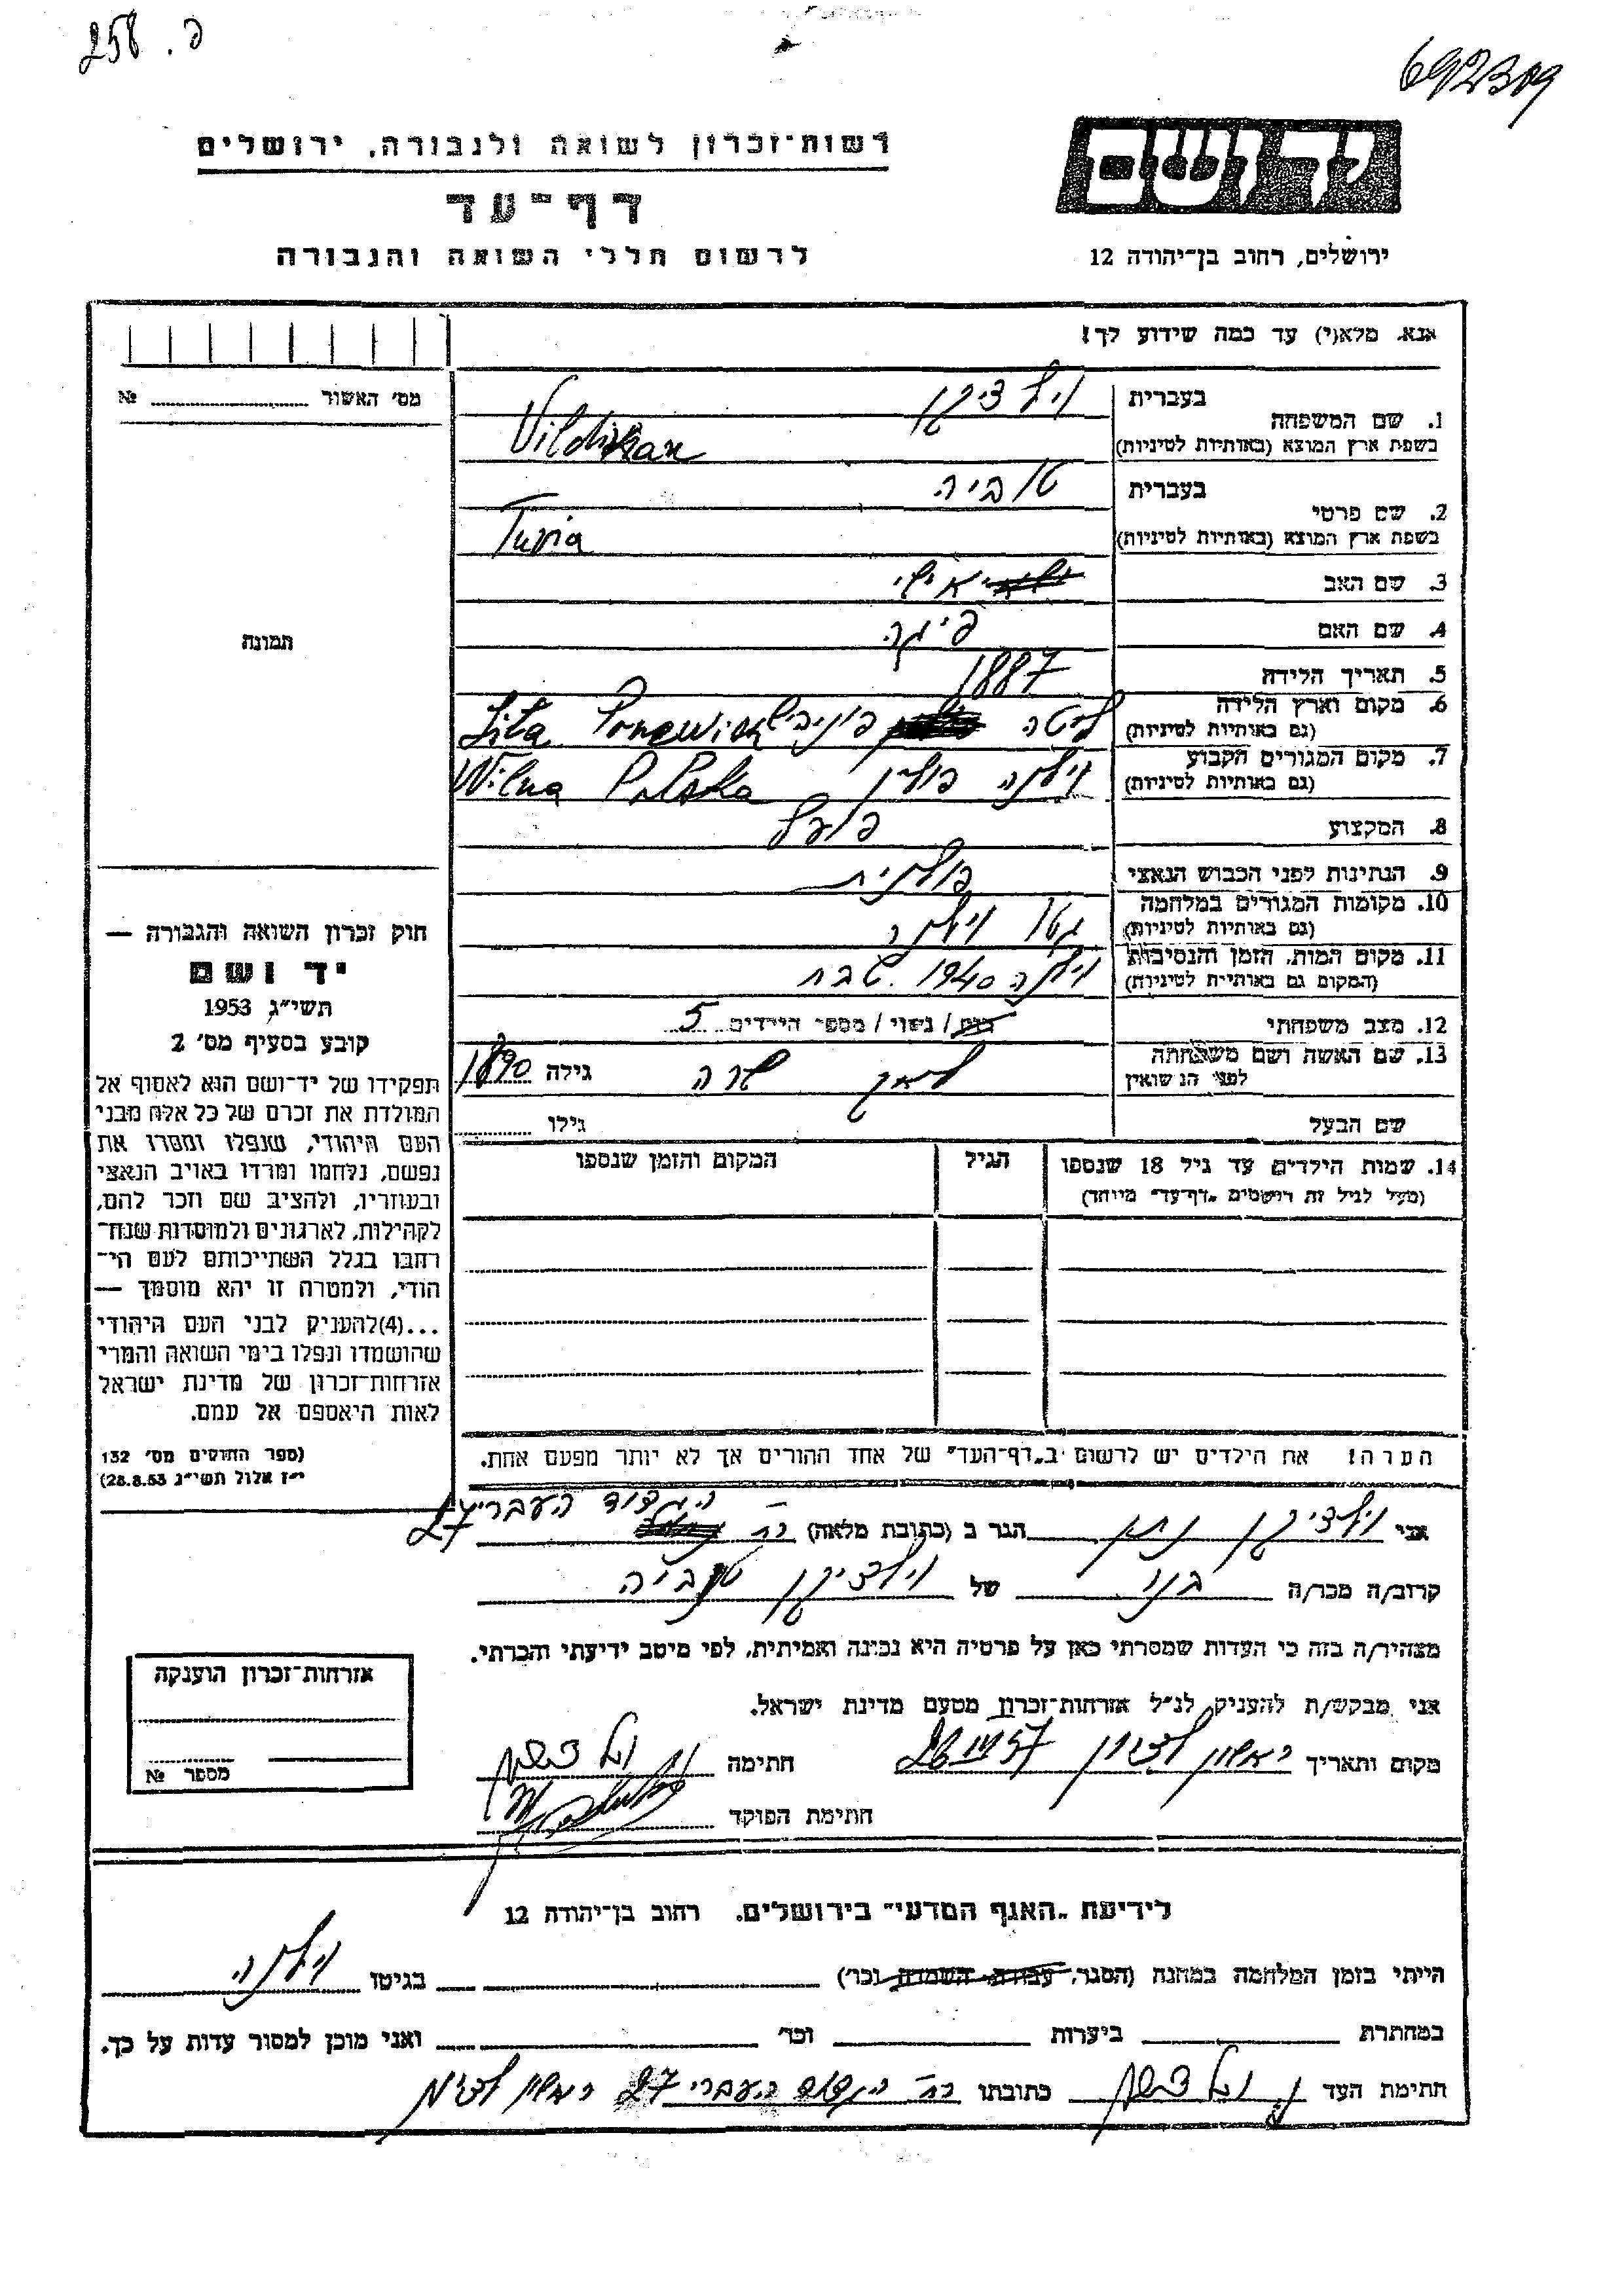 258 . פ
692309
רשות־זכרון לשואה ולגבורה, ירושלים
דף־עד
לרשום חללי השואה והגבורה
יד ושם
ירושלים, רחוב בן־יהודה 12
אנא, מלא(י) עד כמה שידוע לך!
מס' האשור № 
1. שם המשפחה
בעברית וילדיקן
בשפת ארץ המוצא (באותיות לטיניות)
2. שם פרטי
בעברית טוביה
בשפת ארץ המוצא (באותיות לטיניות) Tuvia
3. שם האב
4. שם האם פיגה
5. תאריך הלידה 1887
6. מקום וארץ הלידה
(גם באותיות לטיניות) ליטה פוניביז Lita
7. מקום המגורים הקבוע
(גם באותיות לטיניות) וילנה פולין Wilna Polska
8. המקצוע פועל
9. הנתינות לפני הכבוש הנאצי פולנית
10. מקומות המגורים במלחמה
(גם באותיות לטיניות) גטו וילנה
11. מקום המות, הזמן והנסיבות
(המקום גם באותיות לטיניות) וילנה 1940.
12. מצב משפחתי רוק / נשוי / מספר הילדים 5
13. שם האשה ושם משפחתה
לפני הנשואין שרה גילה 1890
שם הבעל גילו
14. שמות הילדים עד גיל 18 שנספו
(מעל לגיל זה רושמים "דף־עד" מיוחד)
הגיל
המקום והזמן שנספו
הערה! את הילדים יש לרשום ב"דף־העד" של אחד ההורים אך לא יותר מפעם אחת.
תמונה
חוק זכרון השואה והגבורה —
יד ושם
תשי"ג 1953
קובע בסעיף מס' 2
תפקידו של יד־ושם הוא לאסוף אל
המולדת את זכרם של כל אלה מבני
העם היהודי, שנפלו ומסרו את
נפשם, נלחמו ומרדו באויב הנאצי
ובעוזריו, ולהציב שם וזכר להם,
לקהילות, לארגונים ולמוסדות שנח־
רחבו בגלל השתייכותם לעם הי־
הודי, ולמטרה זו יהא מוסמך —
...(4)להעניק לבני העם היהודי
שהושמדו ונפלו בימי השואה והמרי
אזרחות־זכרון של מדינת ישראל
לאות היאספם אל עמם.
(ספר החוקים מס' 132
י"ז אלול תשי"ג 28.8.53)
אני וילדיקן נתן הגר ב (כתובת מלאה) רח הגדוד העברי 27
קרוב/ה מכר/ה בנו של וילדיקן טוביה
מצהיר/ה בזה כי העדות שמסרתי כאן על פרטיה היא נכונה ואמיתית, לפי מיטב ידיעתי והכרתי.
אני מבקש/ת להעניק לנ"ל אזרחות־זכרון מטעם מדינת ישראל.
מקום ותאריך ראשון לציון 57 חתימה
חתימת הפוקד
אזרחות־זכרון הוענקה
מספר №
לידיעת "האגף המדעי" בירושלים, רחוב בן־יהודה 12
הייתי בזמן המלחמה במחנה (הסגר, עבודה, השמדה וכו') בגיטו וילנה
במחתרת ביערות וכו' ואני מוכן למסור עדות על כך.
חתימת העד כתובתו רח הגדוד העברי 27 ראשון לציון